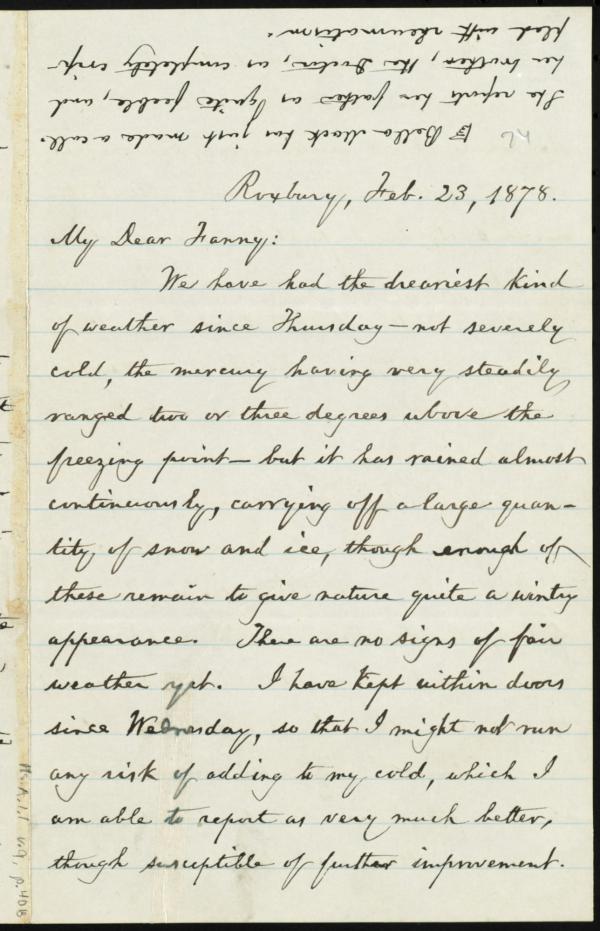 ☞ Bella Mack has just made a call.
She reports her father as quite feeble, and
her brother, the Doctor, as completely crip-
pled with rheumatism.
Roxbury, Feb. 23, 1878.
My Dear Fanny:
We have had the dreariest kind
of weather since Thursday—not severely
cold, the mercury having very steadily
ranged two or three degrees above the
freezing point—but it has rained almost
continuously, carrying off a large quan-
tity of snow and ice, though enough of
these remain to give nature quite a wintry
appearance. There are no signs of fair
weather yet. I have kept within doors
since Wednesday, so that I might not run
any risk of adding to my cold, which I
am able to report as very much better,
though susceptible of further improvement.